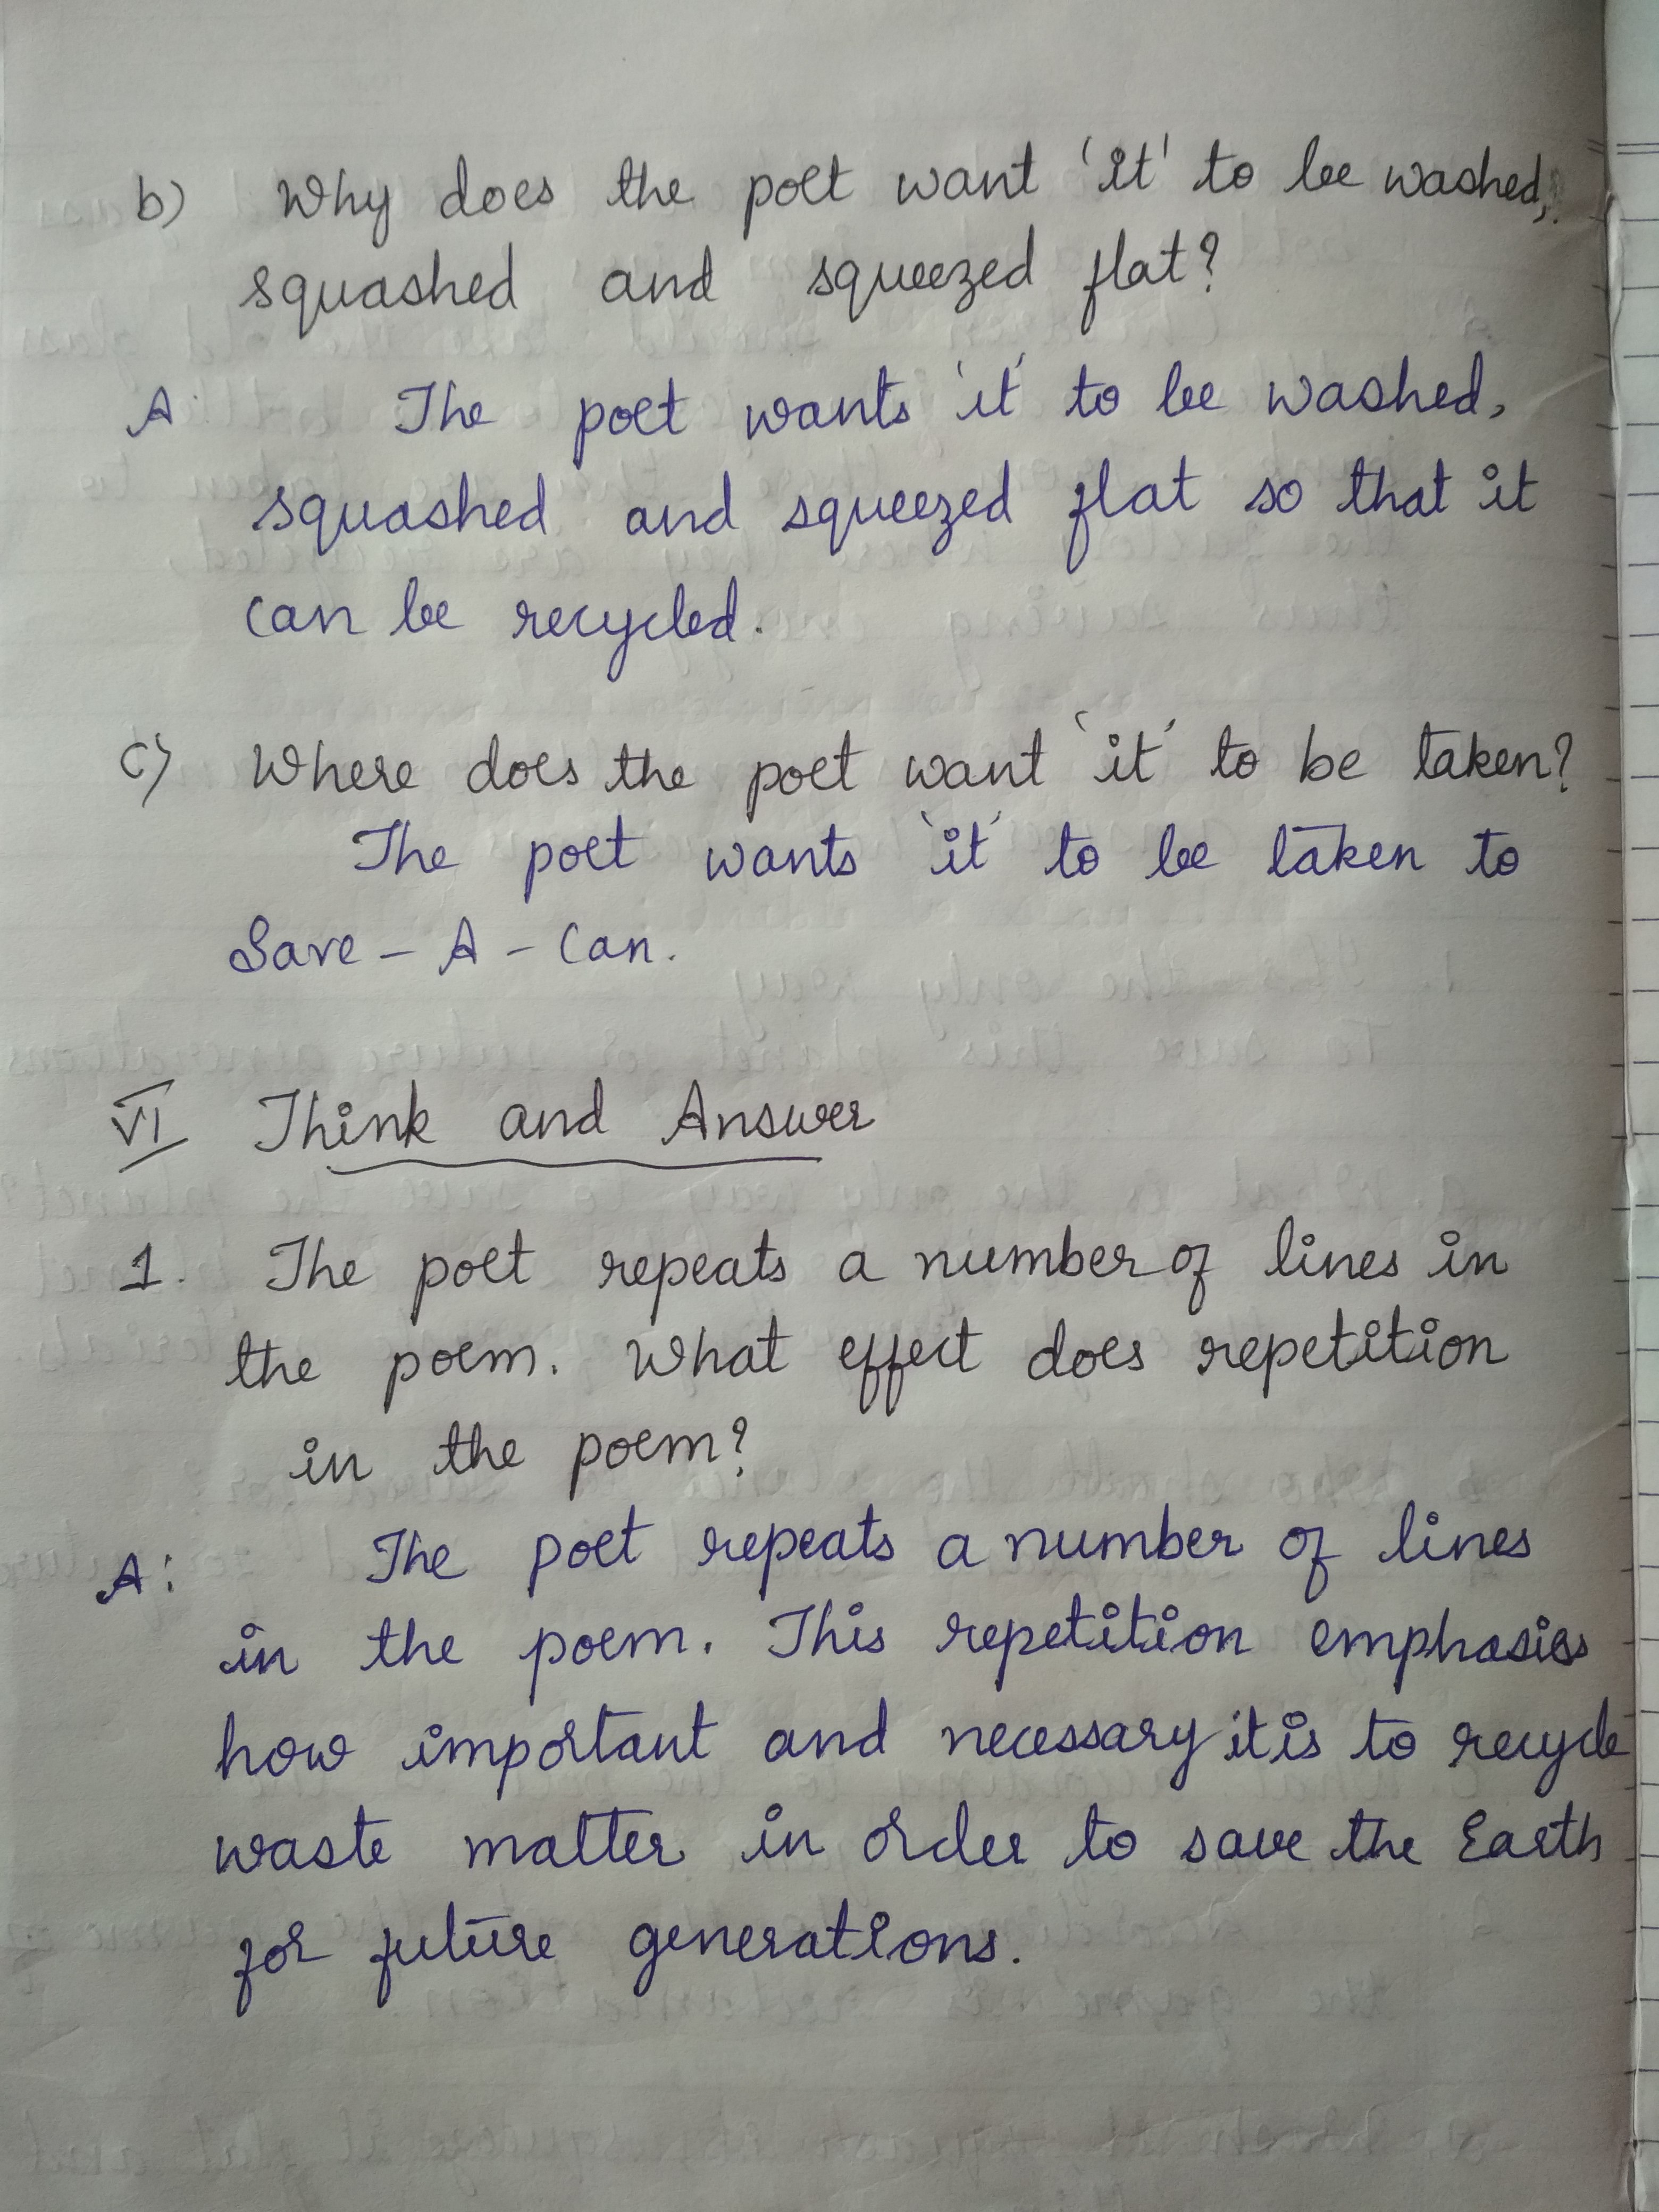 b) Why does the poet want 'it' to be washed,
squashed and squeezed flat?
A: The poet wants 'it' to be washed,
squashed and squeezed flat so that it
can be recycled.
c) Where does the poet want 'it' to be taken?
The poet wants 'it' to be taken to
Save - A - Can.
VI Think and Answer
1. The poet repeats a number of lines in
the poem. What effect does repetition
in the poem?
A: The poet repeats a number of lines
in the poem. This repetition emphasies
how important and necessary it is to recycle
waste matter in order to save the Earth
for future generations.